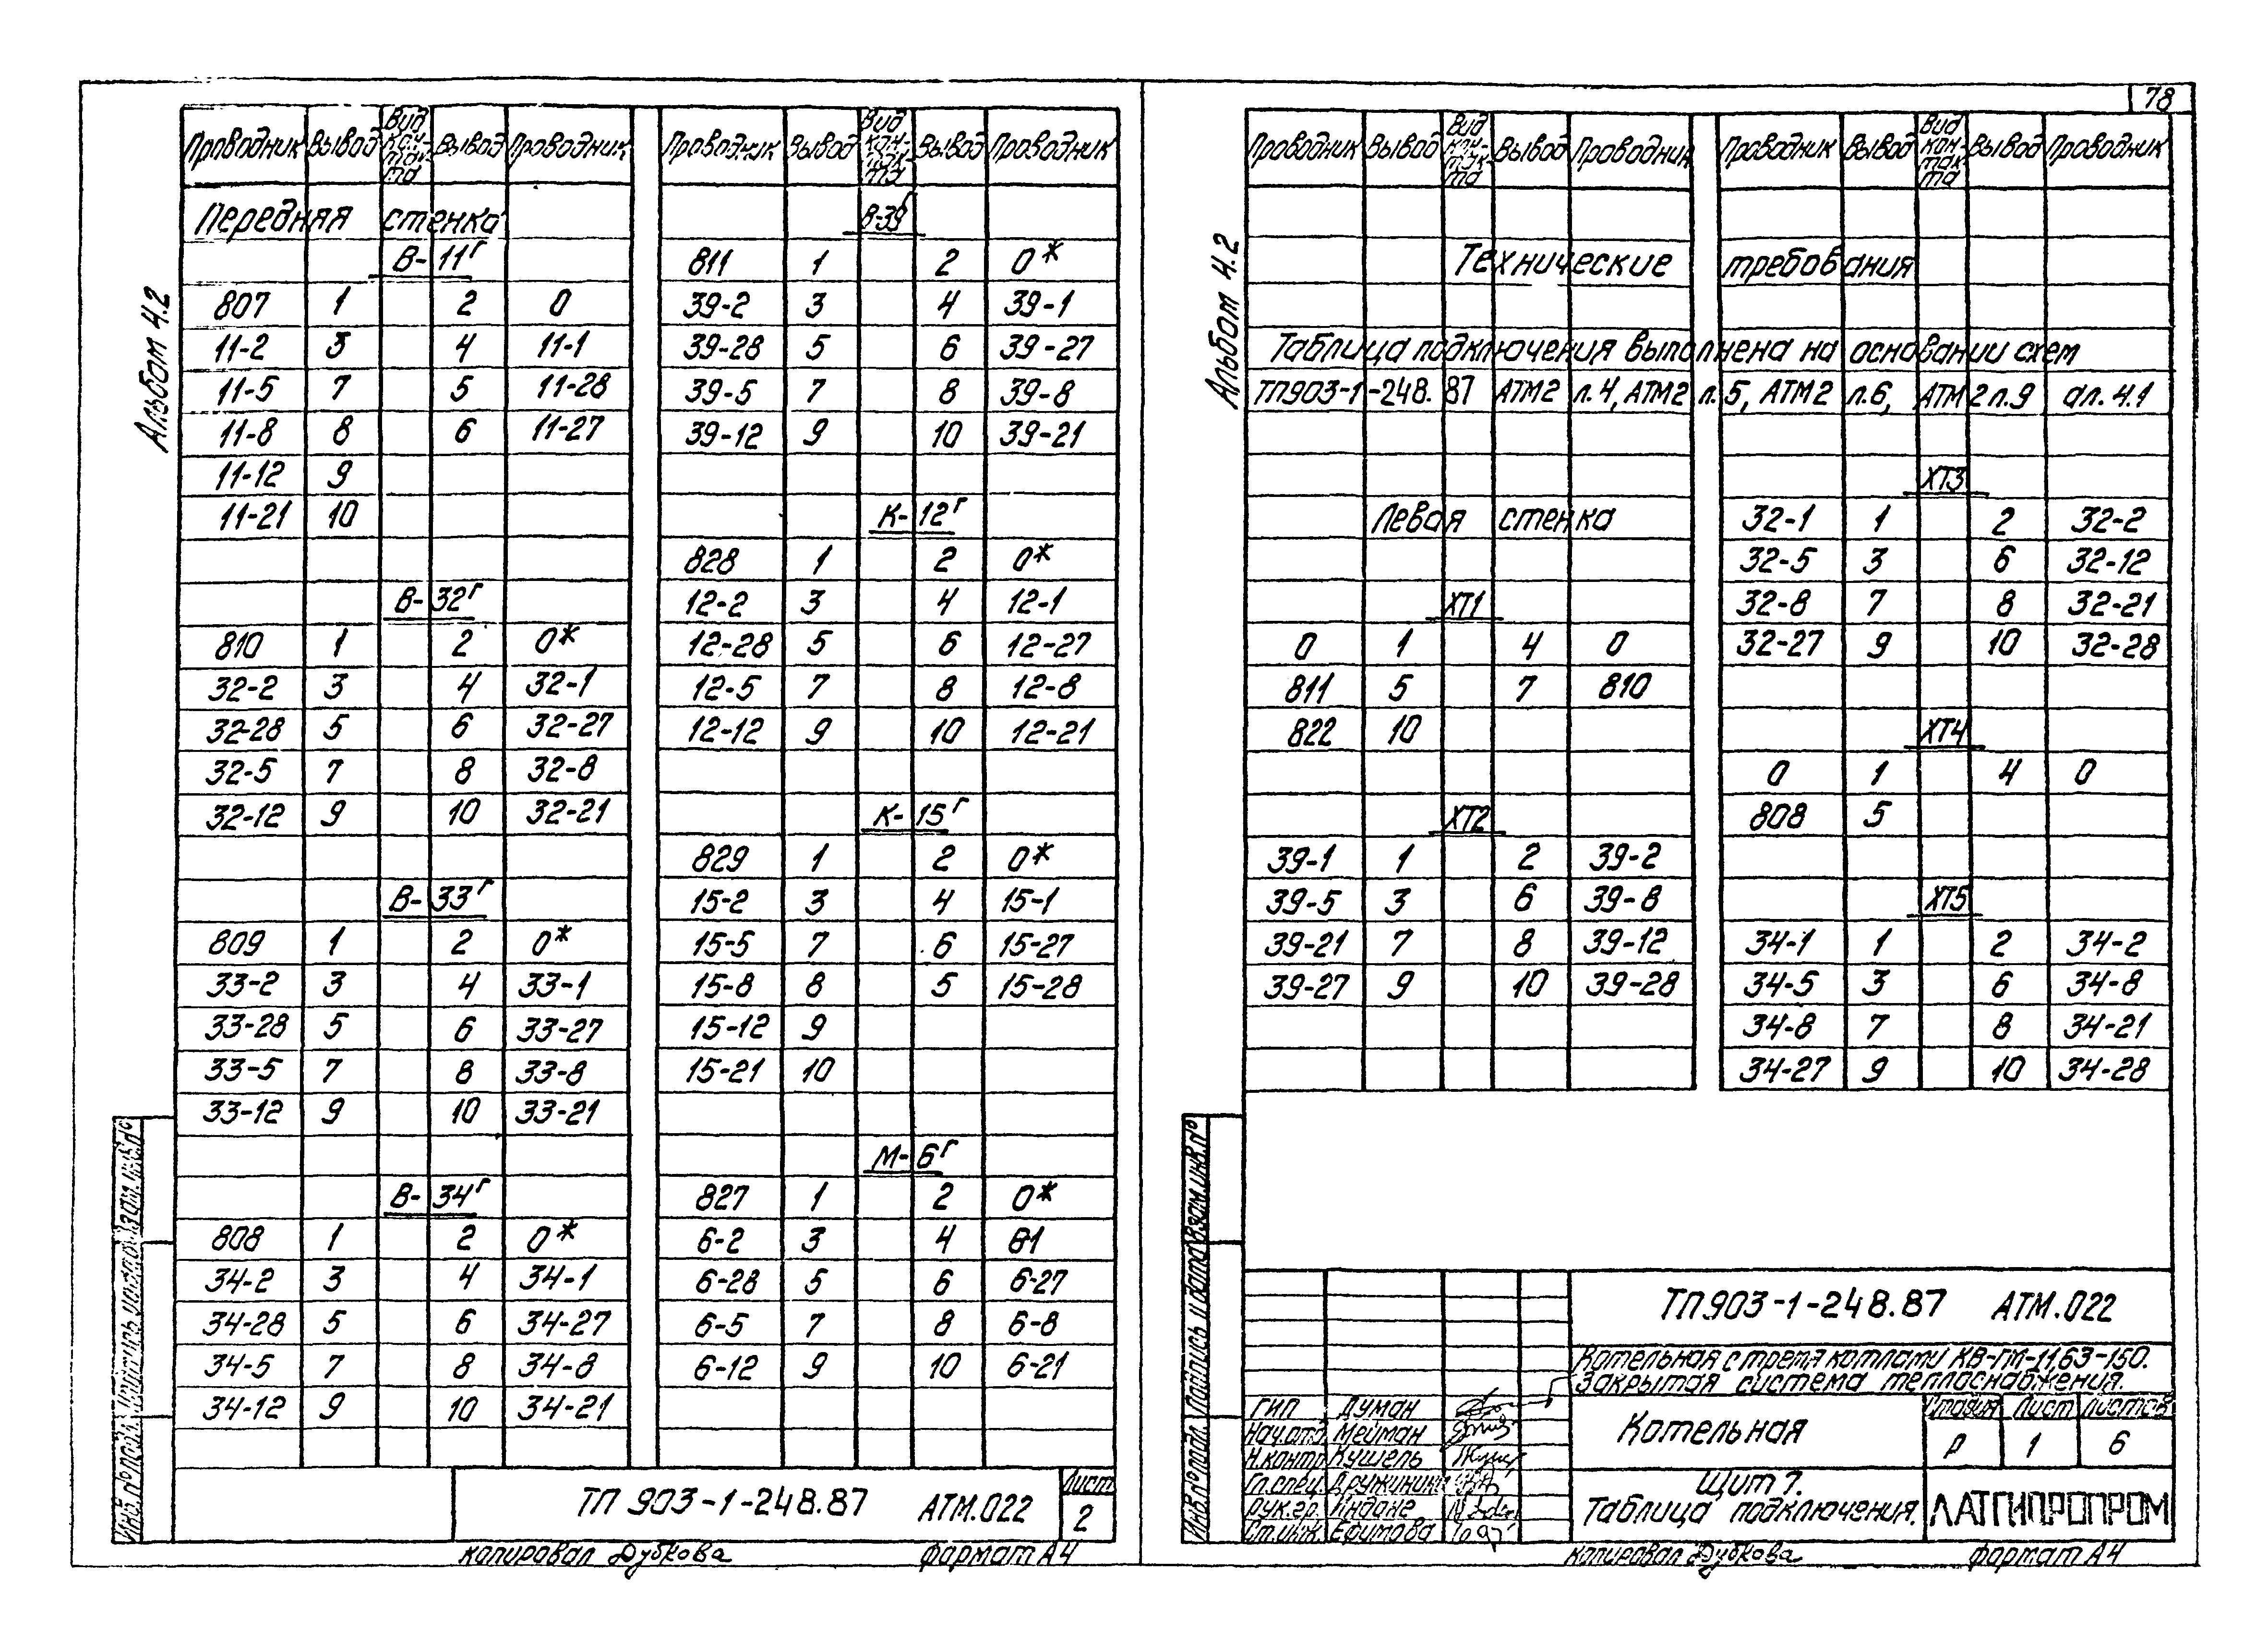 Альбом 4.2
Проводник Вывод Вид кон-так-та Вывод Проводник
Передняя стенка
В-11г
807 1 2 0
11-2 3 4 11-1
11-5 7 5 11-28
11-8 8 6 11-27
11-12 9
11-21 10
В-32г
810 1 2 0*
32-2 3 4 32-1
32-28 5 6 32-27
32-5 7 8 32-8
32-12 9 10 32-21
В-33г
809 1 2 0*
33-2 3 4 33-1
33-28 5 6 33-27
33-5 7 8 33-8
33-12 9 10 33-21
В-34г
808 1 2 0*
34-2 3 4 34-1
34-28 5 6 34-27
34-5 7 8 34-8
34-12 9 10 34-21
Проводник Вывод Вид кон-так-та Вывод Проводник
В-39г
811 1 2 0*
39-2 3 4 39-1
39-28 5 6 39-27
39-5 7 8 39-8
39-12 9 10 39-21
К-12г
828 1 2 0*
12-2 3 4 12-1
12-28 5 6 12-27
12-5 7 8 12-8
12-12 9 10 12-21
К-15г
829 1 2 0*
15-2 3 4 15-1
15-5 7 6 15-27
15-8 8 5 15-28
15-12 9
15-21 10
М-6г
827 1 2 0*
6-2 3 4 61
6-28 5 6 6-27
6-5 7 8 6-8
6-12 9 10 6-21
Инв.№подл. Подпись и дата Взам.инв.№
ТП 903-1-248.87 АТМ.022
Лист
2
копировал Дубкова формат А4
78
Альбом 4.2
Проводник Вывод Вид кон-так-та Вывод Проводник Проводник Вывод Вид кон-так-та Вывод Проводник
Технические требования
Таблица подключения выполнена на основании схем
ТП903-1-248.87 АТМ2 л.4, АТМ2 л.5, АТМ2 л.6, АТМ2 л.9 ал. 4.1
Левая стенка
ХТ1
0 1 4 0
811 5 7 810
822 10
ХТ2
39-1 1 2 39-2
39-5 3 6 39-8
39-21 7 8 39-12
39-27 9 10 39-28
ХТ3
32-1 1 2 32-2
32-5 3 6 32-12
32-8 7 8 32-21
32-27 9 10 32-28
ХТ4
0 1 4 0
808 5
ХТ5
34-1 1 2 34-2
34-5 3 6 34-8
34-8 7 8 34-21
34-27 9 10 34-28
Инв.№подл. Подпись и дата Взам.инв.№
ТП903-1-248.87 АТМ.022
Котельная с тремя котлами КВ-ГМ-11,63-150.
Закрытая система теплоснабжения.
ГИП Думан
Нач.отд. Мейман
Н.контр. Кушель
Гл.спец. Дружинин
Рук.гр. Индане
Ст.инж. Ефимова
Котельная
Стадия Лист Листов
Р 1 6
Щит 7.
Таблица подключения.
ЛАТГИПРОПРОМ
копировал Дубкова формат А4